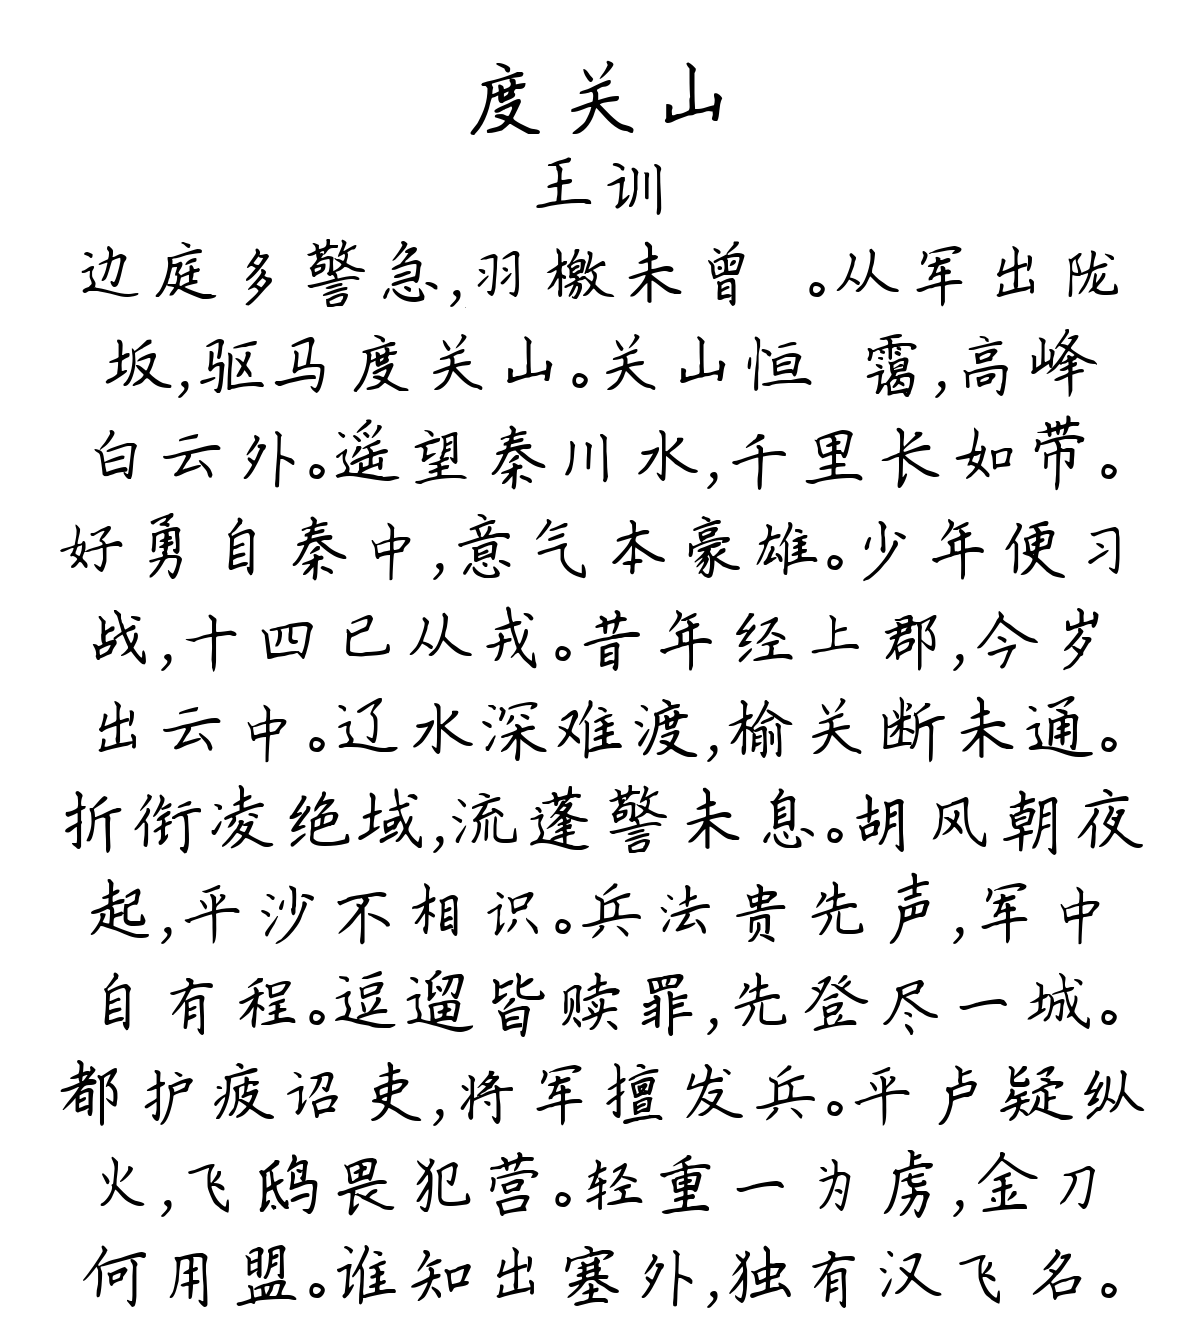 度关山
王训
边庭多警急,羽檄未曾 。从军出陇
坂,驱马度关山。关山恒 霭,高峰
白云外。遥望秦川水,千里长如带。
好勇自秦中,意气本豪雄。少年便习
战,十四已从戎。昔年经上郡,今岁
出云中。辽水深难渡,榆关断未通。
折衔凌绝域,流蓬警未息。胡风朝夜
起,平沙不相识。兵法贵先声,军中
自有程。逗遛皆赎罪,先登尽一城。
都护疲诏吏,将军擅发兵。平卢疑纵
火,飞鸱畏犯营。轻重一为虏,金刀
何用盟。谁知出塞外,独有汉飞名。